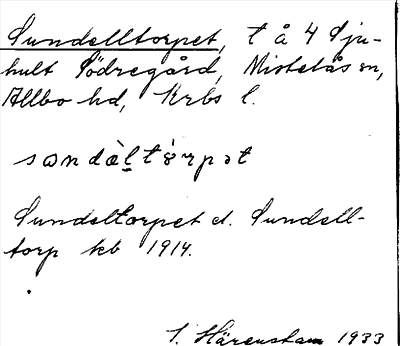 Sundelltorpet, t å 4 Sju-
hult Södregård, Mistelås sn,
Allbo hd, Krbs l.
sɷndàl̠tòrpət
Sundeltorpet el. Sundell-
torp kb 1914.
S. Härenstam 1933